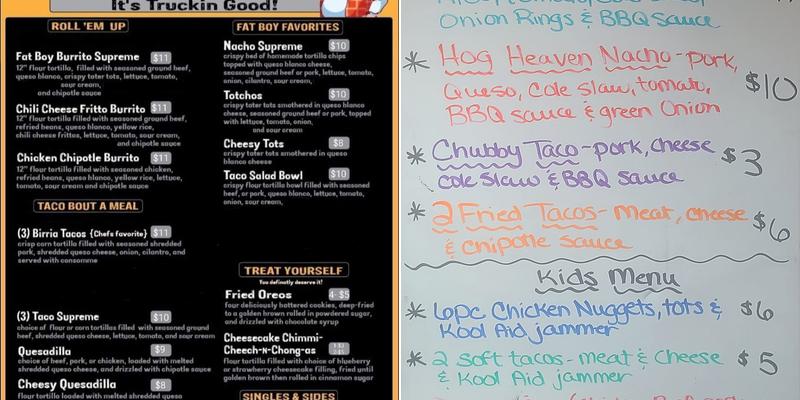 It's Truckin Good!
ROLL 'EM UP
Fat Boy Burrito Supreme $11
12" flour tortilla, filled with seasoned ground beef,
queso blanco, crispy tater tots, lettuce, tomato,
sour cream,
and chipotle sauce
Chili Cheese Fritto Burrito $11
12" flour tortilla filled with seasoned ground beef,
refried beans, queso blanco, yellow rice,
chili cheese frittes, lettuce, tomato, sour cream,
and chipotle sauce
Chicken Chipotle Burrito $11
12" flour tortilla filled with seasoned chicken,
refried beans, queso blanco, yellow rice, lettuce,
tomato, sour cream and chipotle sauce
TACO BOUT A MEAL
(3) Birria Tacos {Chefs favorite} $11
crisp corn tortilla filled with seasoned shredded
pork, shredded queso cheese, onion, cilantro, and
served with consomme
(3) Taco Supreme $10
choice of flour or corn tortillas filled with seasoned ground
beef, shredded queso cheese, lettuce, tomato, and sour cream
Quesadilla $9
choice of beef, pork, or chicken, loaded with melted
shredded queso cheese, and drizzled with chipotle sauce
Cheesy Quesadilla $8
flour tortilla loaded with melted shredded queso
FAT BOY FAVORITES
Nacho Supreme $10
crispy bed of homemade tortilla chips
topped with queso blanco cheese,
seasoned ground beef or pork, lettuce, tomato,
onion, cilantro, sour cream,
Totchos $10
crispy tater tots smothered in queso blanco
cheese, seasoned ground beef or pork, topped
with lettuce, tomato, onion,
and sour cream
Cheesy Tots $8
crispy tater tots smothered in queso
blanco cheese
Taco Salad Bowl $10
crispy flour tortilla bowl filled with seasoned
beef, or pork, queso blanco, lettuce, tomato,
onion, sour cream,
TREAT YOURSELF
You definatly deserve it!
Fried Oreos 4 $5
four deliciously battered cookies, deep-fried
to a golden brown rolled in powdered sugar,
and drizzled with chocolate syrup
Cheesecake Chimmi-
Cheech-N-Chong-as
flour tortilla filled with choice of blueberry
or strawberry cheesecake filling, fried until
golden brown then rolled in cinnamon sugar
SINGLES & SIDES
Onion Rings & BBQ Sauce
* Hog Heaven Nacho - pork,
Queso, Cole Slaw, tomato, $10
BBQ sauce & green Onion
* Chubby Taco - pork, cheese $3
cole slaw & BBQ Sauce
* 2 Fried Tacos - Meat, cheese $6
& chipotle sauce
Kids Menu
* 6pc Chicken Nuggets, tots & $6
Kool Aid jammer
* 2 soft tacos - meat & cheese $5
& Kool Aid jammer